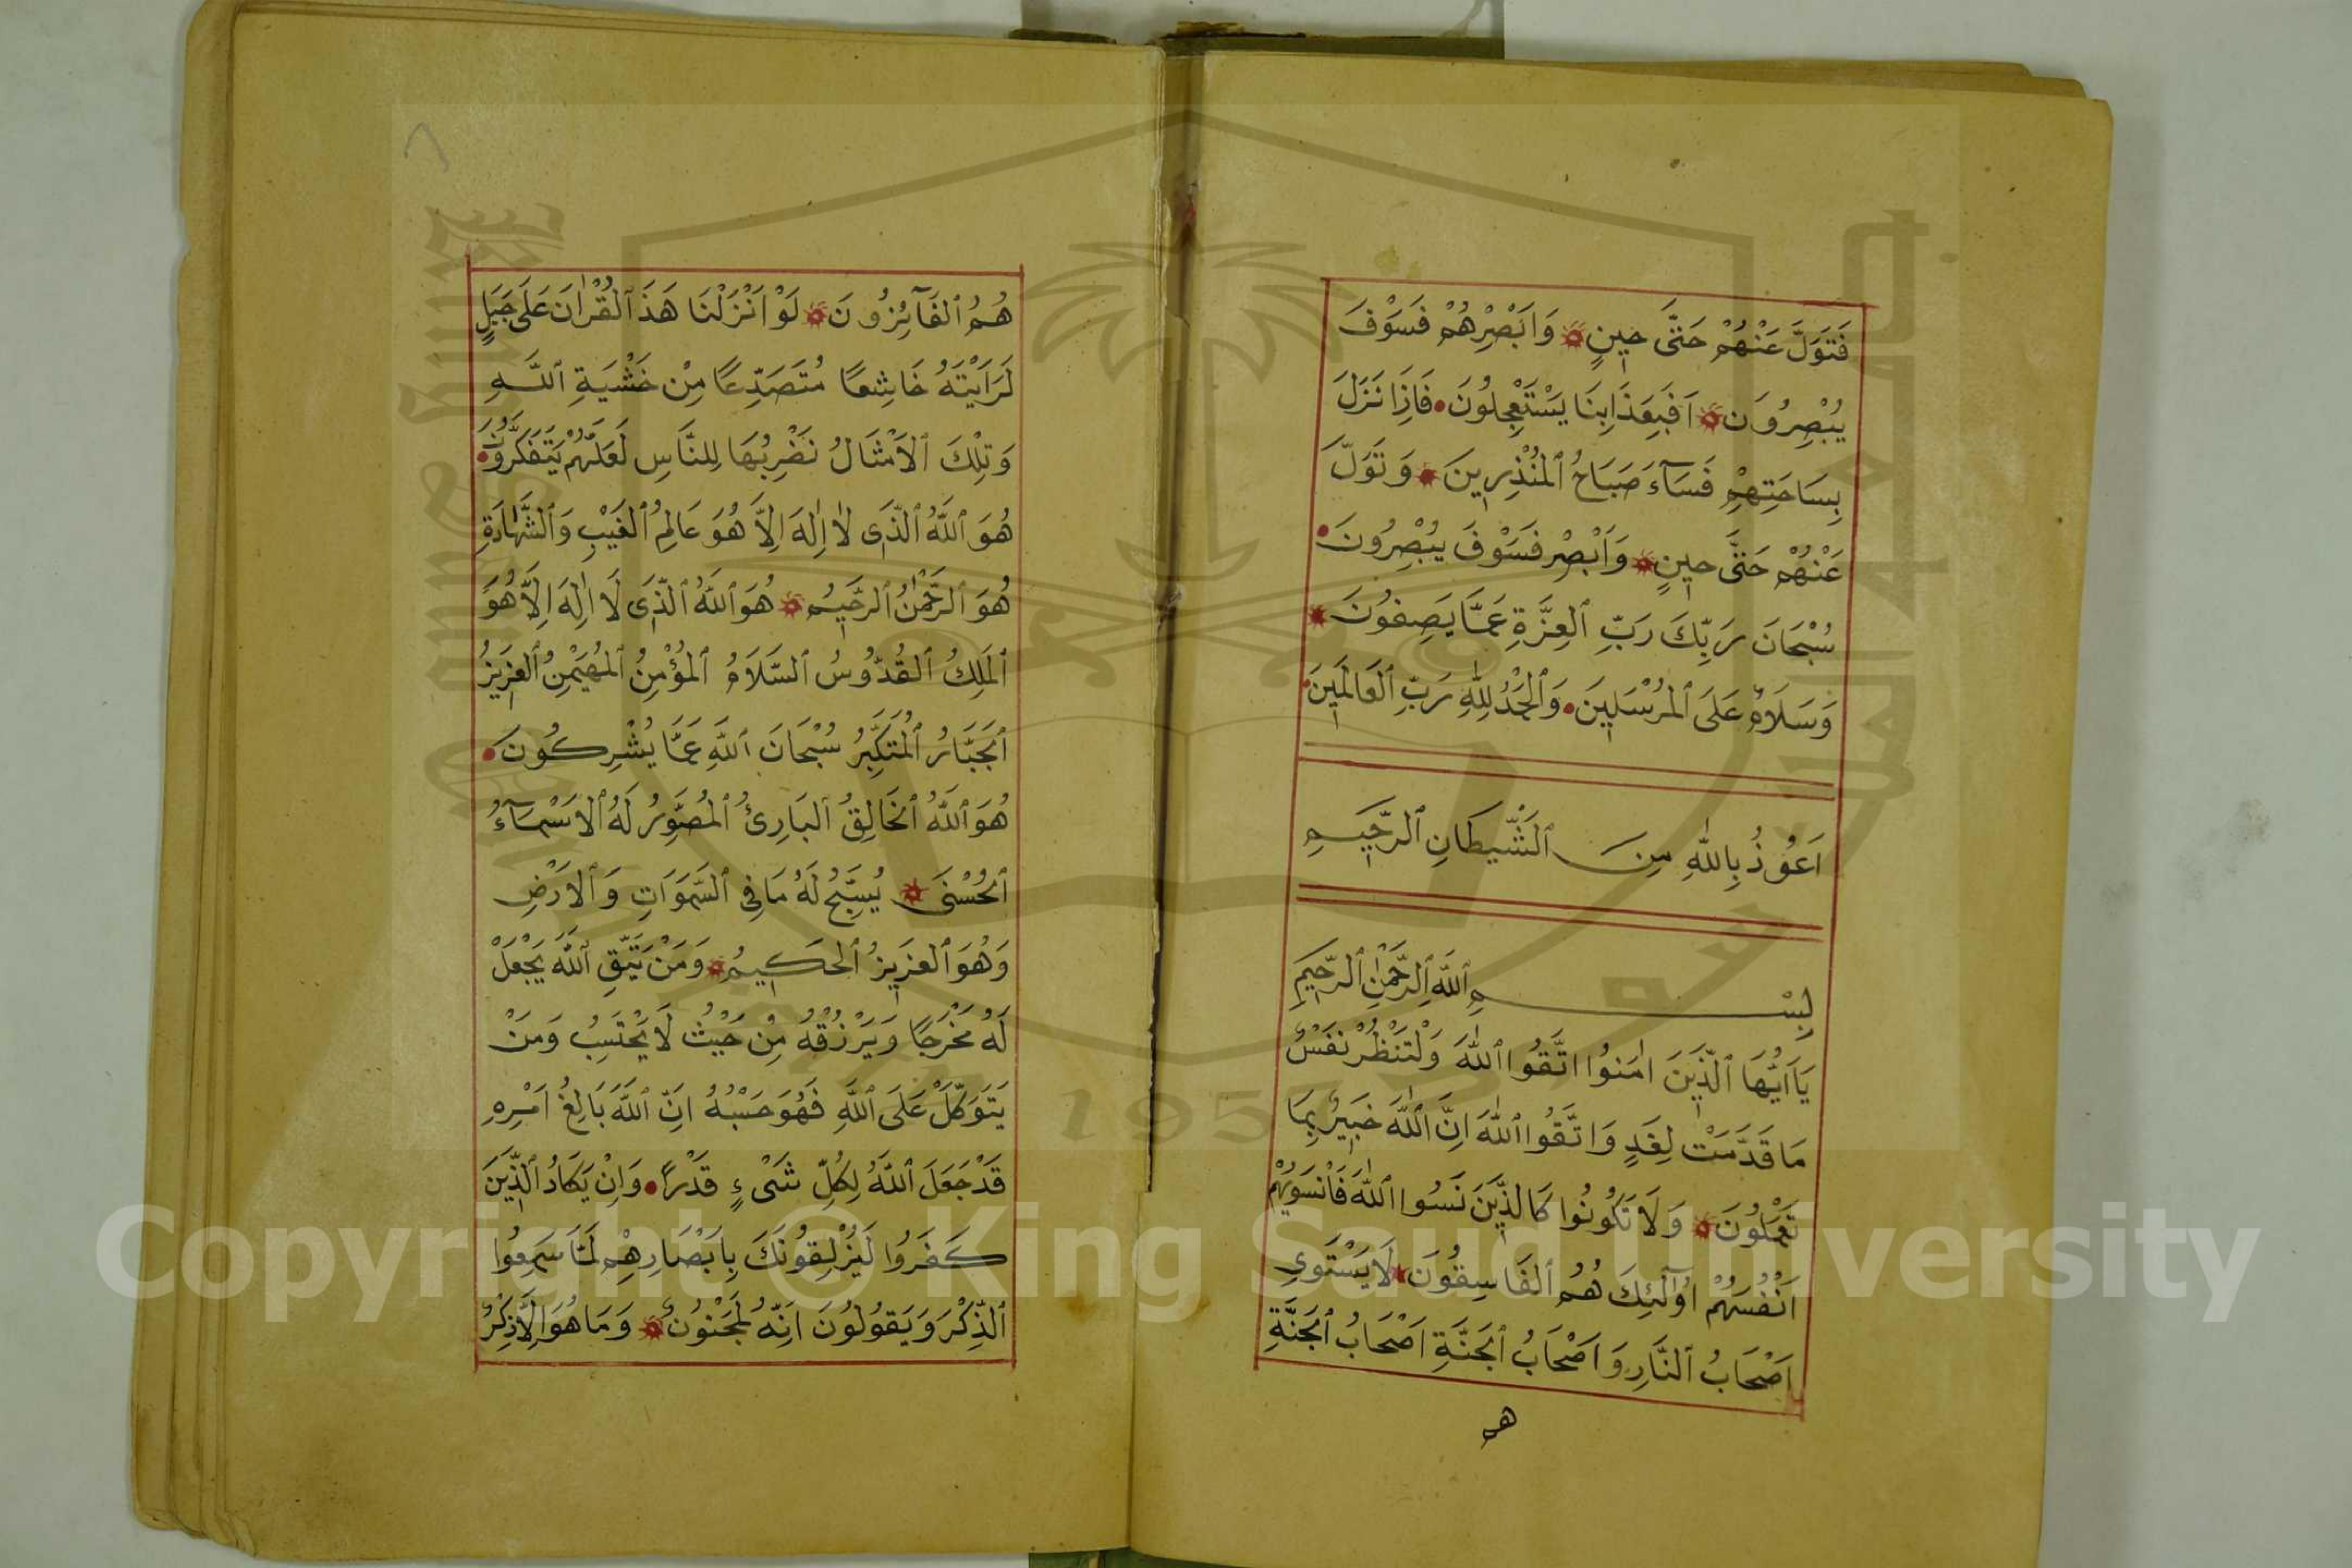 فَتَوَلَّ عَنْهُمْ حَتَّى حِينٍ وَاَبْصِرْهُمْ فَسَوْفَ
يُبْصِرُونَ اَفَبِعَذَابِنَا يَسْتَعْجِلُونَ فَاِذَا نَزَلَ
بِسَاحَتِهِمْ فَسَآءَ صَبَاحُ ٱلمُنْذِرِينَ وَتَوَلَّ
عَنْهُمْ حَتَّى حِينٍ وَاَبْصِرْ فَسَوْفَ يُبْصِرُونَ
سُبْحَانَ رَبِّكَ رَبِّ ٱلعِزَّةِ عَمَّا يَصِفُونَ
وَسَلَامٌ عَلَى ٱلمُرْسَلِينَ وَٱلحَمْدُ لِلّٰهِ رَبِّ ٱلعَالَمِينَ
اَعُوذُ بِاللّٰهِ مِنَ ٱلشَّيْطَانِ ٱلرَّجِيمِ
بِسْمِ ٱللّٰهِ ٱلرَّحْمٰنِ ٱلرَّحِيمِ
يَااَيُّهَا ٱلَّذِينَ اٰمَنُوا اتَّقُوا ٱللّٰهَ وَلْتَنْظُرْ نَفْسٌ
مَا قَدَّمَتْ لِغَدٍ وَاتَّقُوا ٱللّٰهَ اِنَّ ٱللّٰهَ خَبِيرٌ بِمَا
تَعْمَلُونَ وَلَا تَكُونُوا كَالَّذِينَ نَسُوا ٱللّٰهَ فَاَنْسَيهُمْ
اَنْفُسَهُمْ اُولٰٓئِكَ هُمُ ٱلفَاسِقُونَ لَا يَسْتَوِى
اَصْحَابُ ٱلنَّارِ وَاَصْحَابُ ٱلجَنَّةِ اَصْحَابُ ٱلجَنَّةِ
هم
هُمُ ٱلفَآئِزُونَ لَوْ اَنْزَلْنَا هَذَا ٱلقُرْاٰنَ عَلَى جَبَلٍ
لَرَاَيْتَهُ خَاشِعًا مُتَصَدِّعًا مِنْ خَشْيَةِ ٱللّٰهِ
وَتِلْكَ ٱلاَمْثَالُ نَضْرِبُهَا لِلنَّاسِ لَعَلَّهُمْ يَتَفَكَّرُونَ
هُوَ ٱللّٰهُ ٱلَّذِى لَا اِلٰهَ اِلَّا هُوَ عَالِمُ ٱلغَيْبِ وَٱلشَّهَادَةِ
هُوَ ٱلرَّحْمٰنُ ٱلرَّحِيمُ هُوَ ٱللّٰهُ ٱلَّذِى لَا اِلٰهَ اِلَّا هُوَ
ٱلمَلِكُ ٱلقُدُّوسُ ٱلسَّلَامُ ٱلمُؤْمِنُ ٱلمُهَيْمِنُ ٱلعَزِيزُ
ٱلجَبَّارُ ٱلمُتَكَبِّرُ سُبْحَانَ ٱللّٰهِ عَمَّا يُشْرِكُونَ
هُوَ ٱللّٰهُ ٱلخَالِقُ ٱلبَارِئُ ٱلمُصَوِّرُ لَهُ ٱلاَسْمَآءُ
ٱلحُسْنَى يُسَبِّحُ لَهُ مَا فِى ٱلسَّمَوَاتِ وَٱلاَرْضِ
وَهُوَ ٱلعَزِيزُ ٱلحَكِيمُ وَمَنْ يَتَّقِ ٱللّٰهَ يَجْعَلْ
لَهُ مَخْرَجًا وَيَرْزُقْهُ مِنْ حَيْثُ لَا يَحْتَسِبُ وَمَنْ
يَتَوَكَّلْ عَلَى ٱللّٰهِ فَهُوَ حَسْبُهُ اِنَّ ٱللّٰهَ بَالِغُ اَمْرِهِ
قَدْ جَعَلَ ٱللّٰهُ لِكُلِّ شَىْءٍ قَدْرًا وَاِنْ يَكَادُ ٱلَّذِينَ
كَفَرُوا لَيُزْلِقُونَكَ بِاَبْصَارِهِمْ لَمَّا سَمِعُوا
ٱلذِّكْرَ وَيَقُولُونَ اِنَّهُ لَمَجْنُونٌ وَمَا هُوَ اِلَّا ذِكْرٌ
Copyright © King Saud University
1957